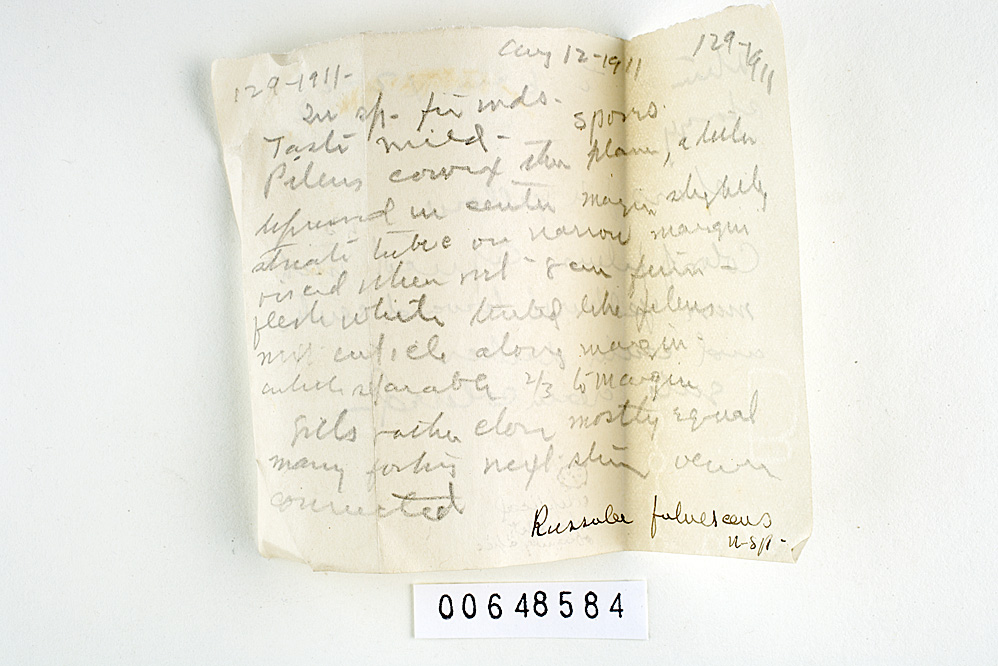 129-1911- Aug 12-1911 129-1911
In sp. fir wds.
Taste mild - spores
Pileus convex then plane, a little
depressed in center margin slightly
striate tuberc on narrow margin
viscid when wet - firm -
flesh white tinted like pileus
next cuticle along margin -
cuticle separable 2/3 to margin
Gills rather close mostly equal
many forking next stem veiny
connected
Russula fulvescens
n-sp-
00648584